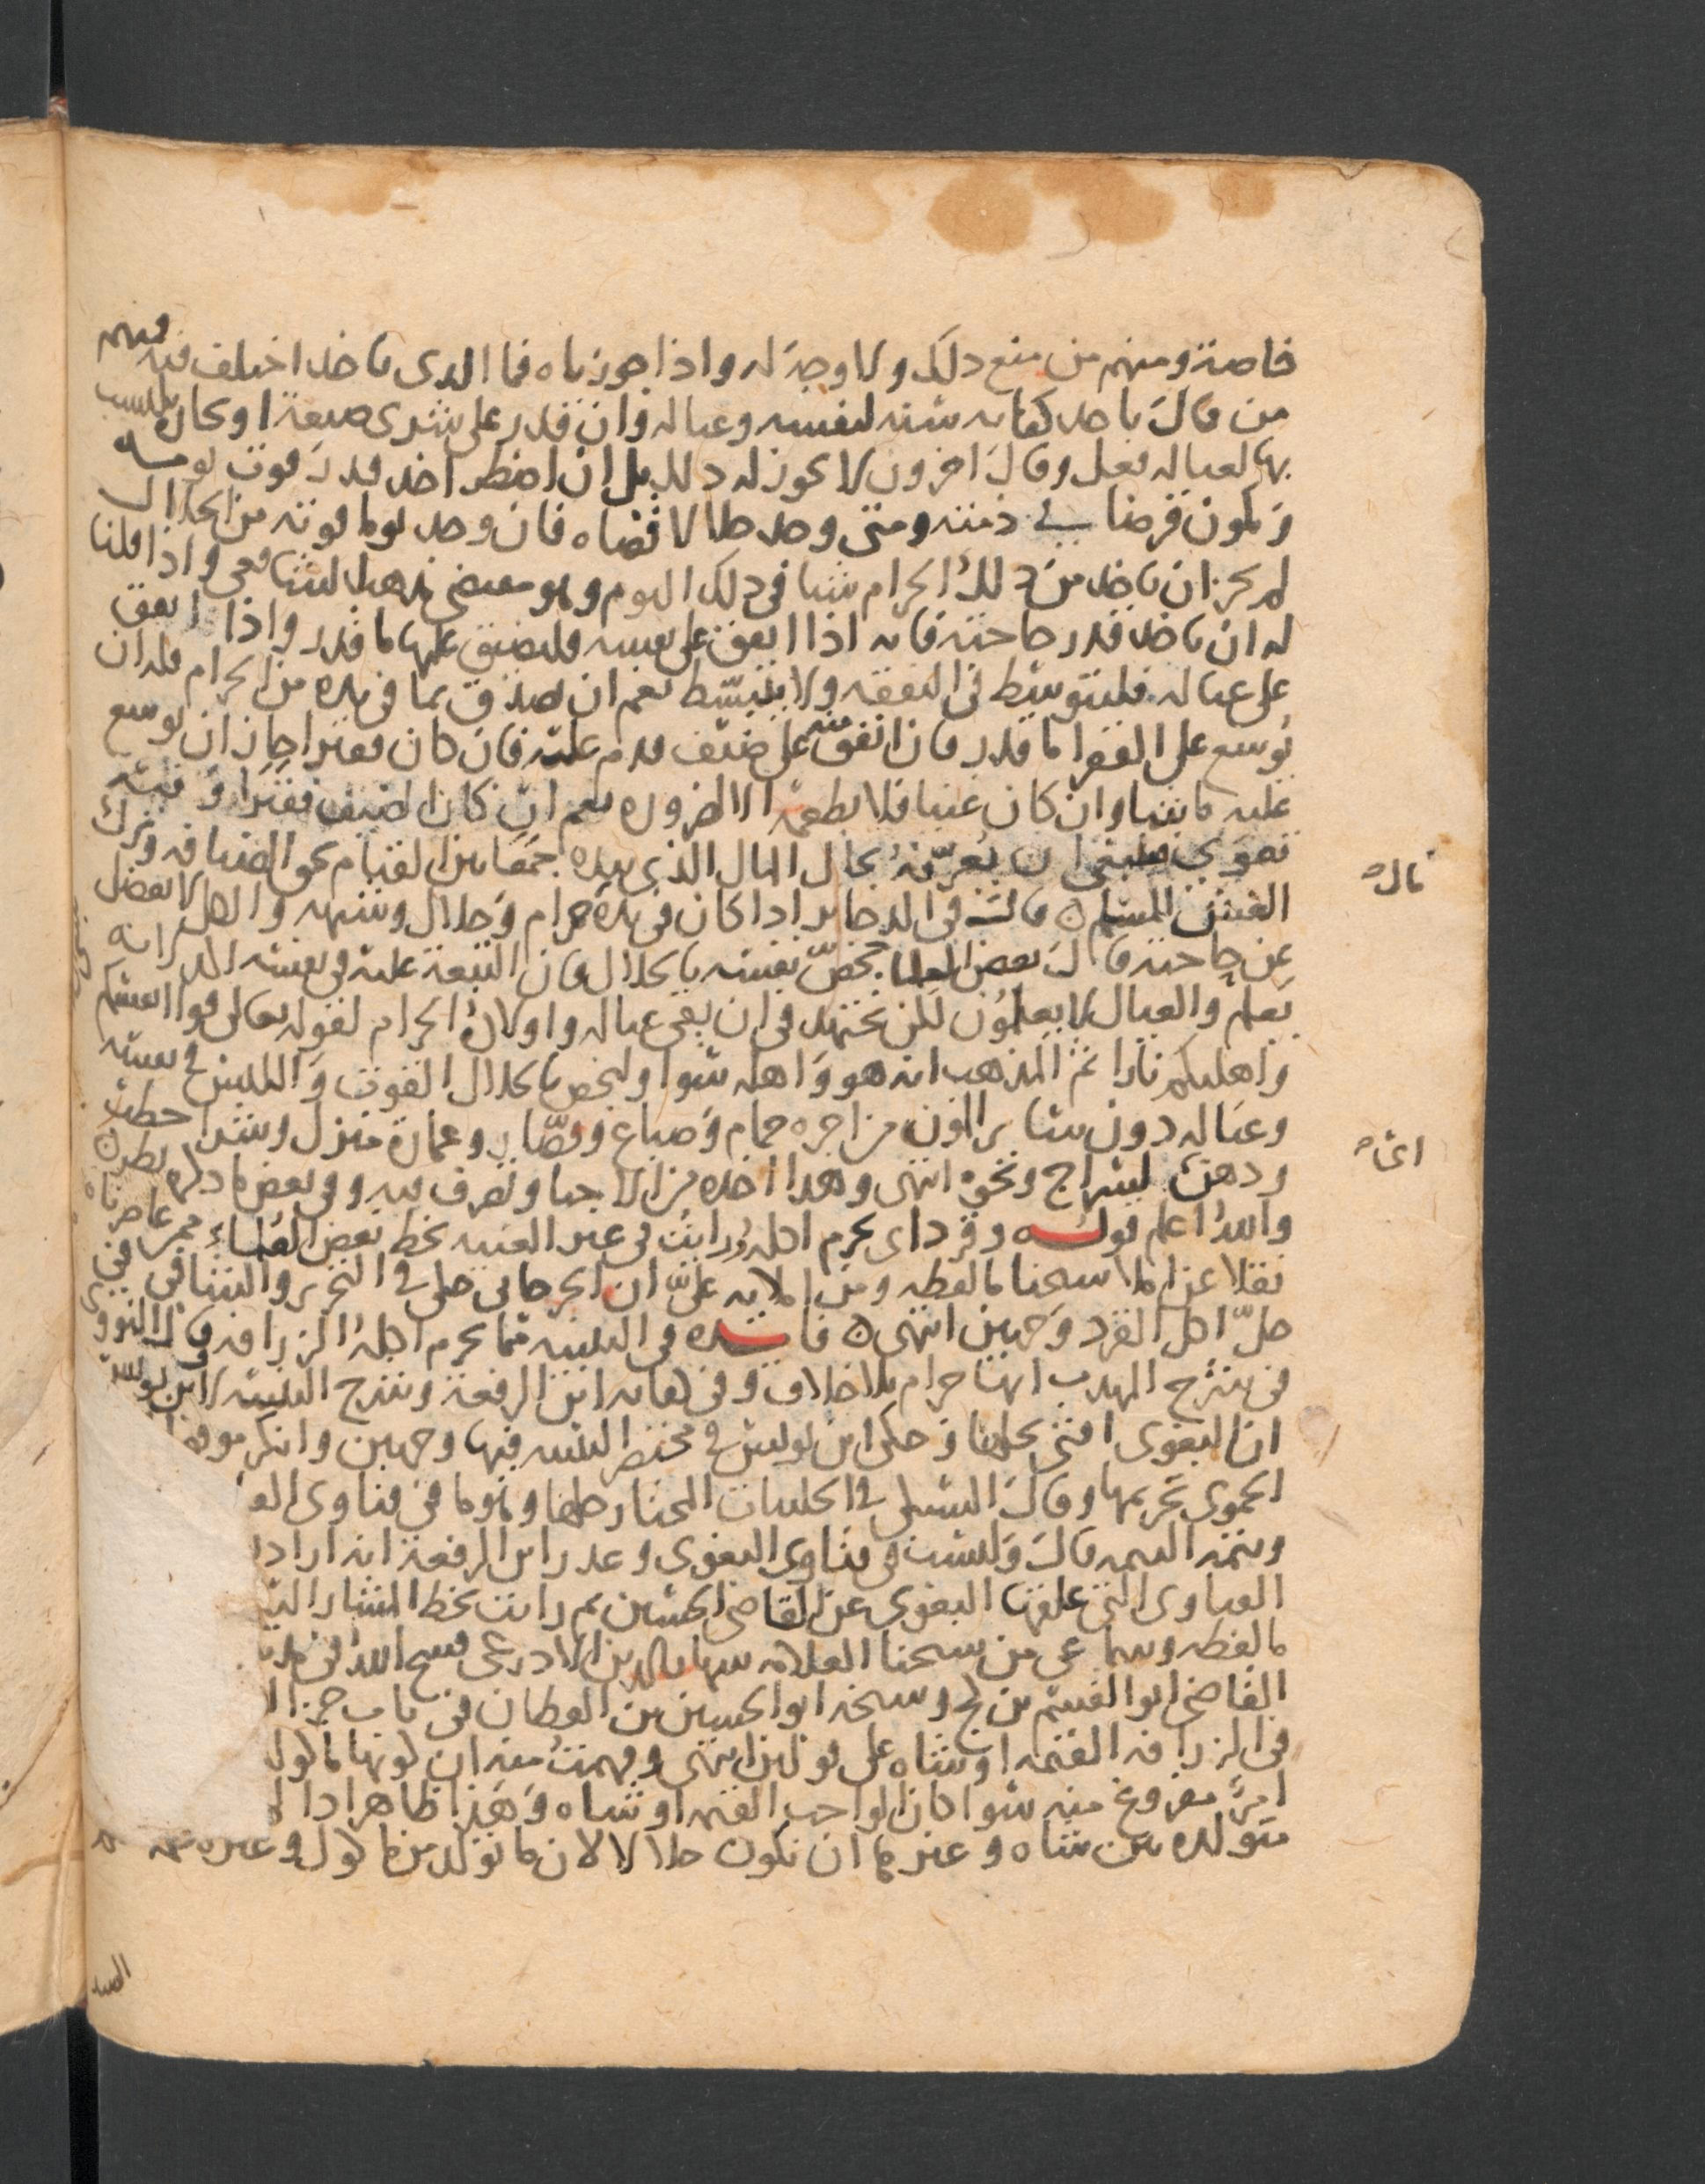 خاصة ومنهم من منع ذلك ولا وجه له واذا جوزناه فما الذي ياخذ اختلف فيه فمنهم
من قال ياخذ كفايه سنه لنفسه وعياله وان قدر على شرى ضيعة او تجارة يكتسب
بها لعياله فعل وقال اخرون لا يجوز له ذلك بل ان اضطر اخذ قدر قوت يومه
ويكون قرضا في ذمته ومتى وجد حلالا قضاه فان وجد يوما قوته من الحلال
لم يجز ان ياخذ من ذلك الحرام شيا في ذلك اليوم وهو مقتضى مذهب الشافعي واذا قلنا
له ان ياخذ قدر حاجته فانه اذا انفق على نفسه فليضيق عليها ما قدر واذا انفق
على عياله فليتوسط في النفقه ولا ينبسط نعم ان تصدق بما في يده من الحرام فله ان
يوسع على الفقرا ما قدر فان انفق منه على ضيف قدم عليه فان كان فقيرا جاز ان يوسع
عليه ما شا وان كان غنيا فلا يطعمه الا لضروره نعم ان كان الضيف فقيرا وفيه
تقوى فينبغي ان يعرفه بحال المال الذي بيده جمعا بين القيام بحق الضيافه وترك
الغش للمسلم قال في الذخاير اذا كان في يده حرام وحلال وشبهه والكل لا يفضل
عن حاجته قال بعض العلما يخص نفسه بالحلال فان التبعة عليه في نفسه اكد لانه
يعلم والعيال لا يعلمون لكن يجتهد في ان يقي عياله واولاده الحرام لقوله تعالى قوا انفسكم
واهليكم نارا ثم المذهب انه هو واهله سوا وليخص بالحلال القوت والملبس في نفسه
وعياله دون سائر المؤن من اجره حمام وصباغ وقصار وعمارة منزل وشرا حطب
ودهن لسراج ونحوه انتهى وهذا اخذه من الاحيا وتصرف فيه وفي بعض ما ذكره نظر
والله اعلم قوله وقرد اي يحرم اكله ورايت في غير الغنيه بخط بعض العلماء ممن عاصرناه
نقلا عن املا شيخنا ما لفظه ومن املايه علي ان الجرجاني حكى في التحرير والشافي في
حل اكل القرد وجهين انتهى فائده في التنبيه مما يحرم اكله الزرافه وقال النووي
في شرح المهذب انها حرام بلا خلاف وفي كفايه ابن الرفعة وشرح التنبيه لابن يونس
ان البغوي افتى بحلها وحكى ابن يونس في مختصر التنبيه فيها وجهين وانكر موفق
الحموي تحريمها وقال السبكي في الحلبيات المختار حلها وهو ما في فتاوى القا
وتتمه التتمه قال وليست في فتاوى البغوي وعذر ابن الرفعة انه اراد
الفتاوى التي علقها البغوي عن القاضي الحسين ثم رايت بخط المشار اليه
ما لفظه وسماعي من شيخنا العلامه شهاب الدين الاذرعي فسح الله في مد
القاضي ابو القسم بن كج وشيخه ابو الحسين بن القطان في باب جزا ا
في الزرافه القيمه او شاه على قولين انتهى وفهمت منه ان كونها ماكول
امر مفروغ منه سوا كان الواجب القيمه او شاه وهذا ظاهر اذا ا
متولده بين شاه وغيرها ان تكون حلالا لان ما تولد من ماكول وغيره
قال
اعني